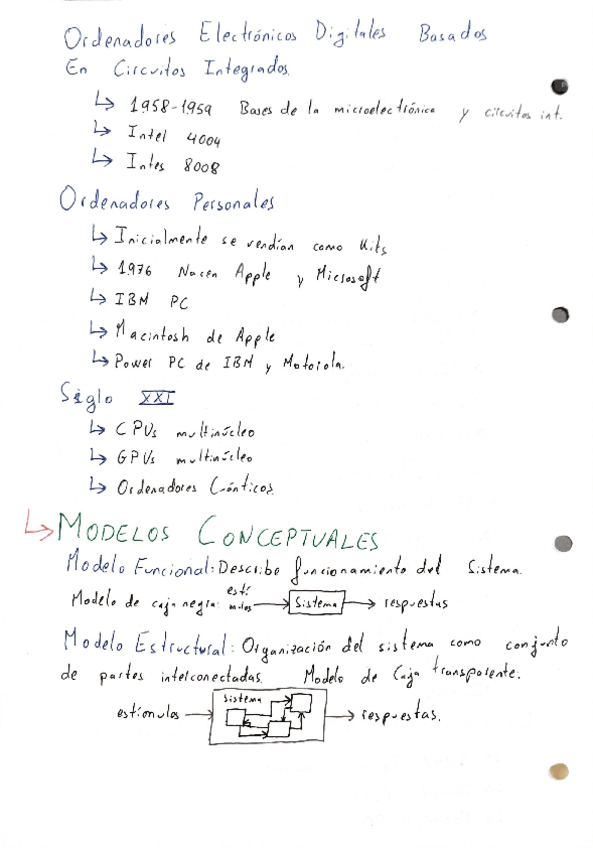 Ordenadores Electrónicos Digitales Basados
En Circuitos Integrados.
↳ 1958-1959 Bases de la microelectrónica y circuitos int.
↳ Intel 4004
↳ Intes 8008
Ordenadores Personales
↳ Inicialmente se vendían como Kits
↳ 1976 Nacen Apple y Microsoft
↳ IBM PC
↳ Macintosh de Apple
↳ Power PC de IBM y Motorola.
Siglo XXI
↳ CPUs multinúcleo
↳ GPUs multinúcleo
↳ Ordenadores Cuánticos
↳ MODELOS CONCEPTUALES
Modelo Funcional: Describe funcionamiento del sistema.
Modelo de caja negra: estímulos → sistema → respuestas
Modelo Estructural: Organización del sistema como conjunto
de partes interconectadas. Modelo de Caja transparente.
sistema
estímulos → → respuestas.